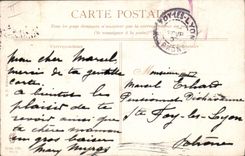 CARTE POSTALE
Mon cher Marcel
merci de ta gentille
carte
a bientot le
plaisir de te
revoir ainsi que
ta chère maman
un gros baiser
Monsieur
Marcel
Pensionnat
Ste Foy-les-Lyon
Rhône